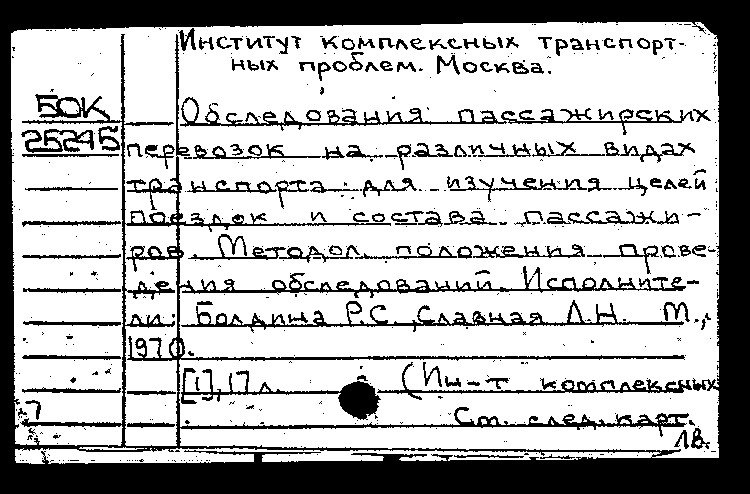 Институт комплексных транспорт-
ных проблем. Москва.
БОК
25245
Обследования пассажирских
перевозок на различных видах
транспорта для изучения целей
поездок и состава пассажи-
ров. Методол. положения прове-
дения обследований. Исполните-
ли: Болдина Р.С., Славная Л.Н. М.,
1970.
[1], 17 л. (Ин-т комплексных
7
См. след. карт.
18.